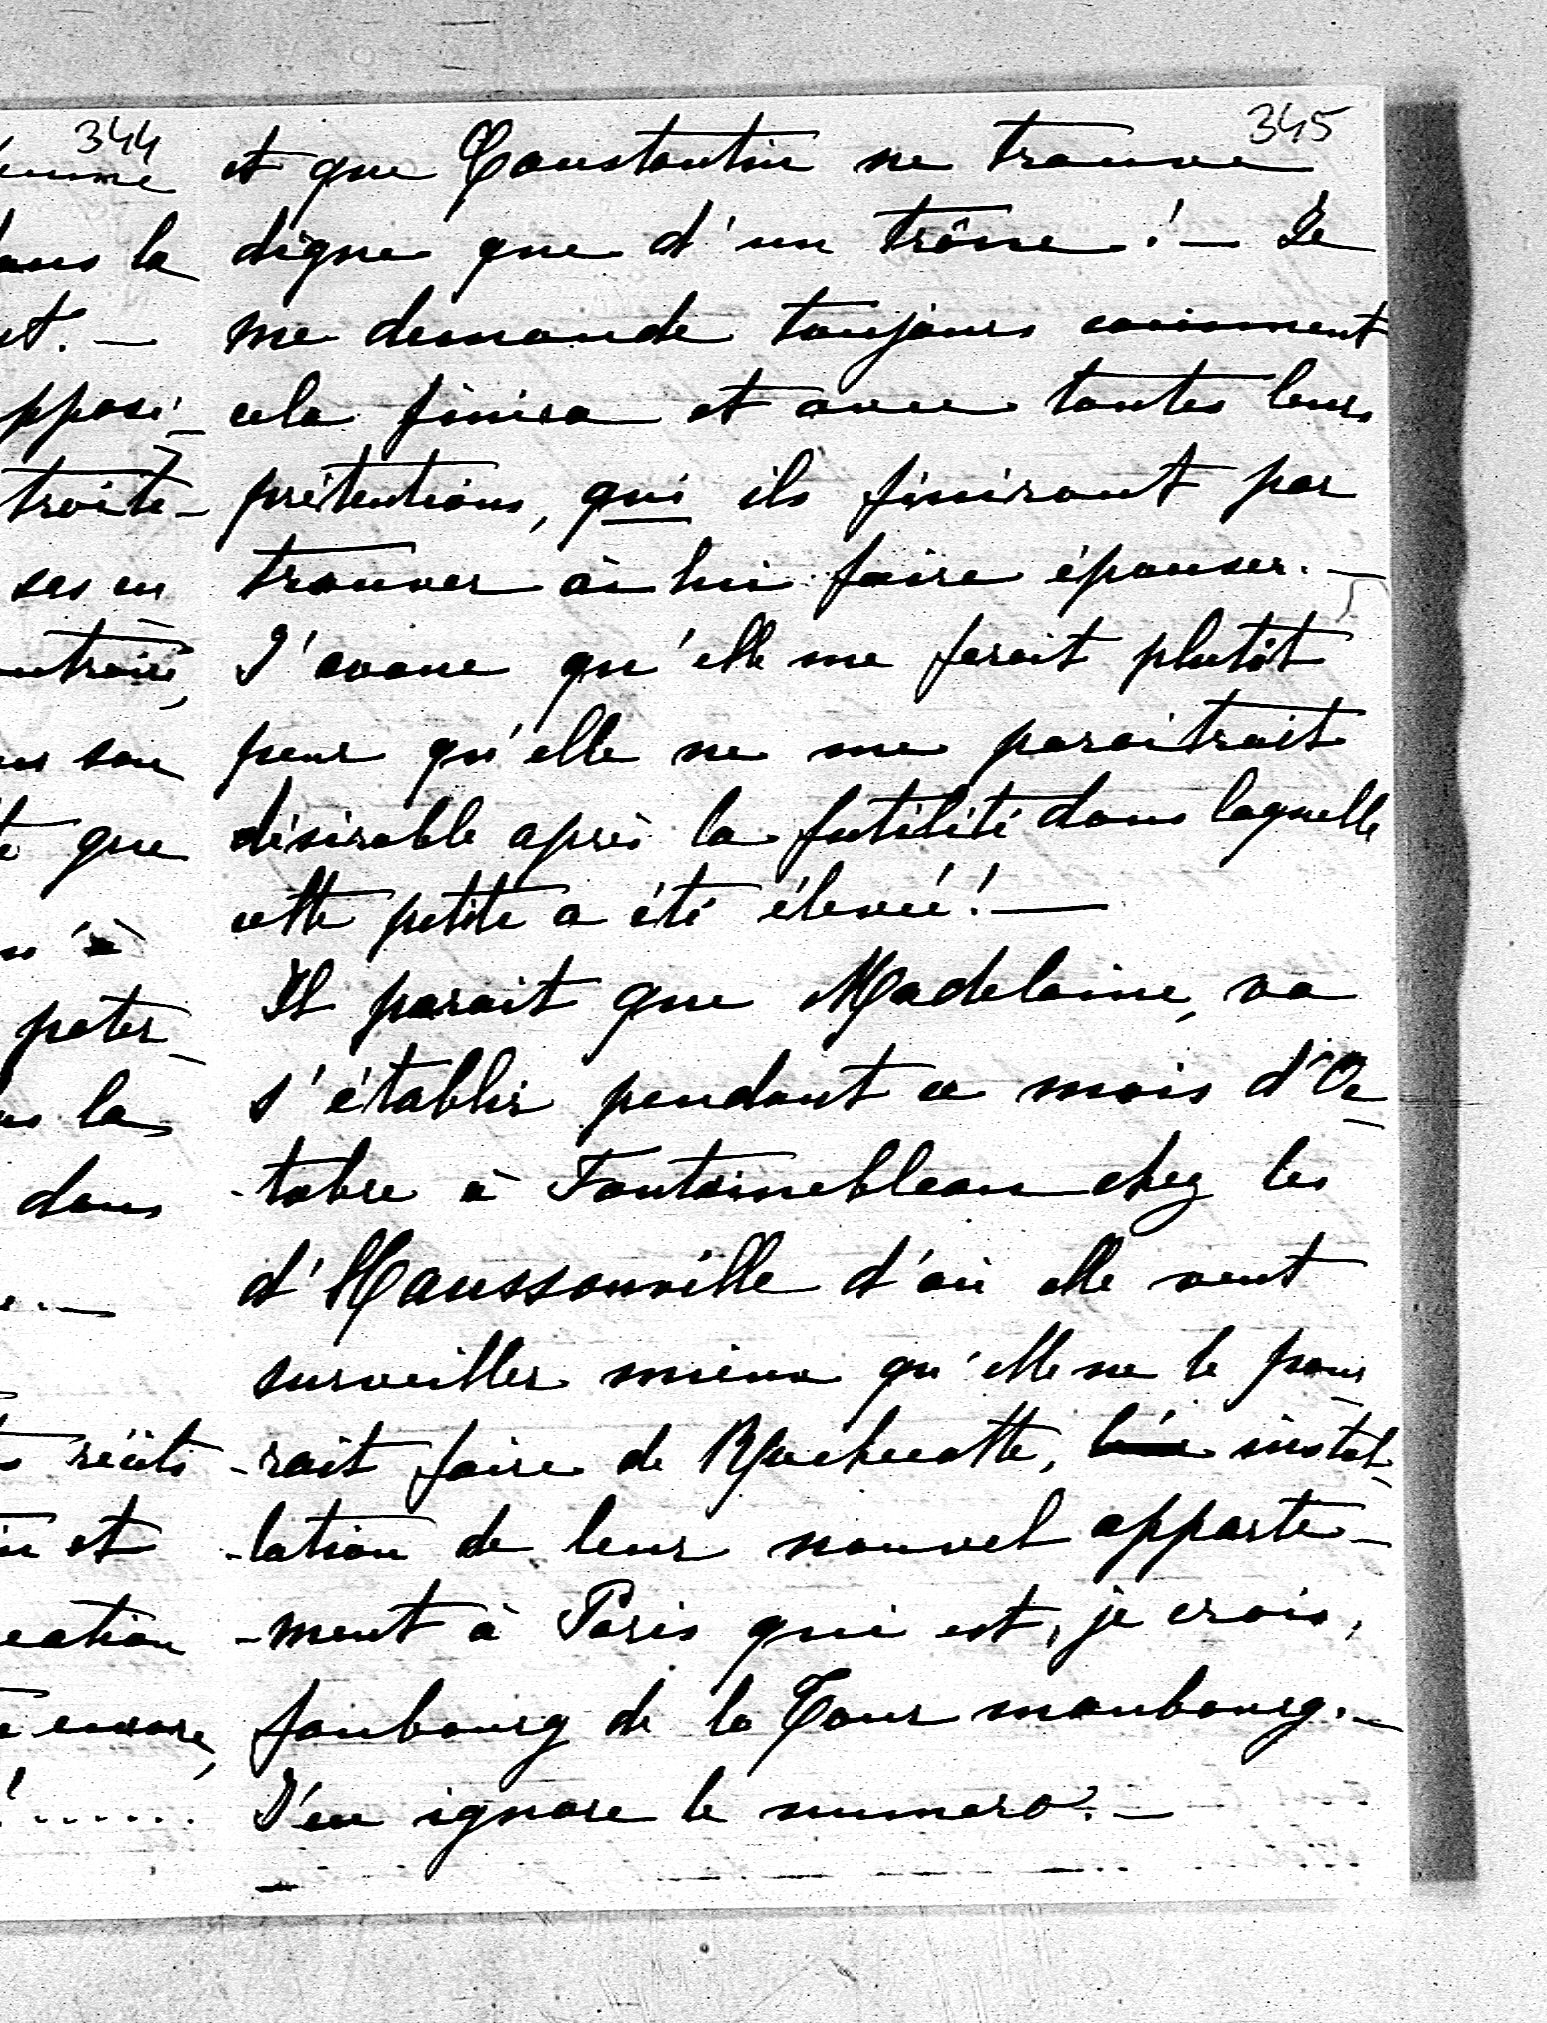 344
dans la
t. —
pposi-
troite-
ses en
que
n'à
pater-
la
dans
récits
et
encore,
345
et que Constantin ne trouve
digne que d'un trône! — Je
me demande toujours comment
cela finira et avec toutes leurs
prétentions, qui ils finiront par
trouver à lui faire épouser. —
J'avoue qu'elle me ferait plutôt
peur qu'elle ne me paraitrait
désirable après la futilité dans laquelle
cette petite a été élevée! —
Il parait que Madelaine, va
s'établir pendant ce mois d'Oc-
-tobre à Fontainebleau chez les
d'Haussonville d'où elle veut
surveiller mieux qu'elle ne le pour-
-rait faire de Rochecotte, instal-
-lation de leur nouvel apparte-
-ment à Paris qui est, je crois,
faubourg de la Tour maubourg. —
J'en ignore le numero. —